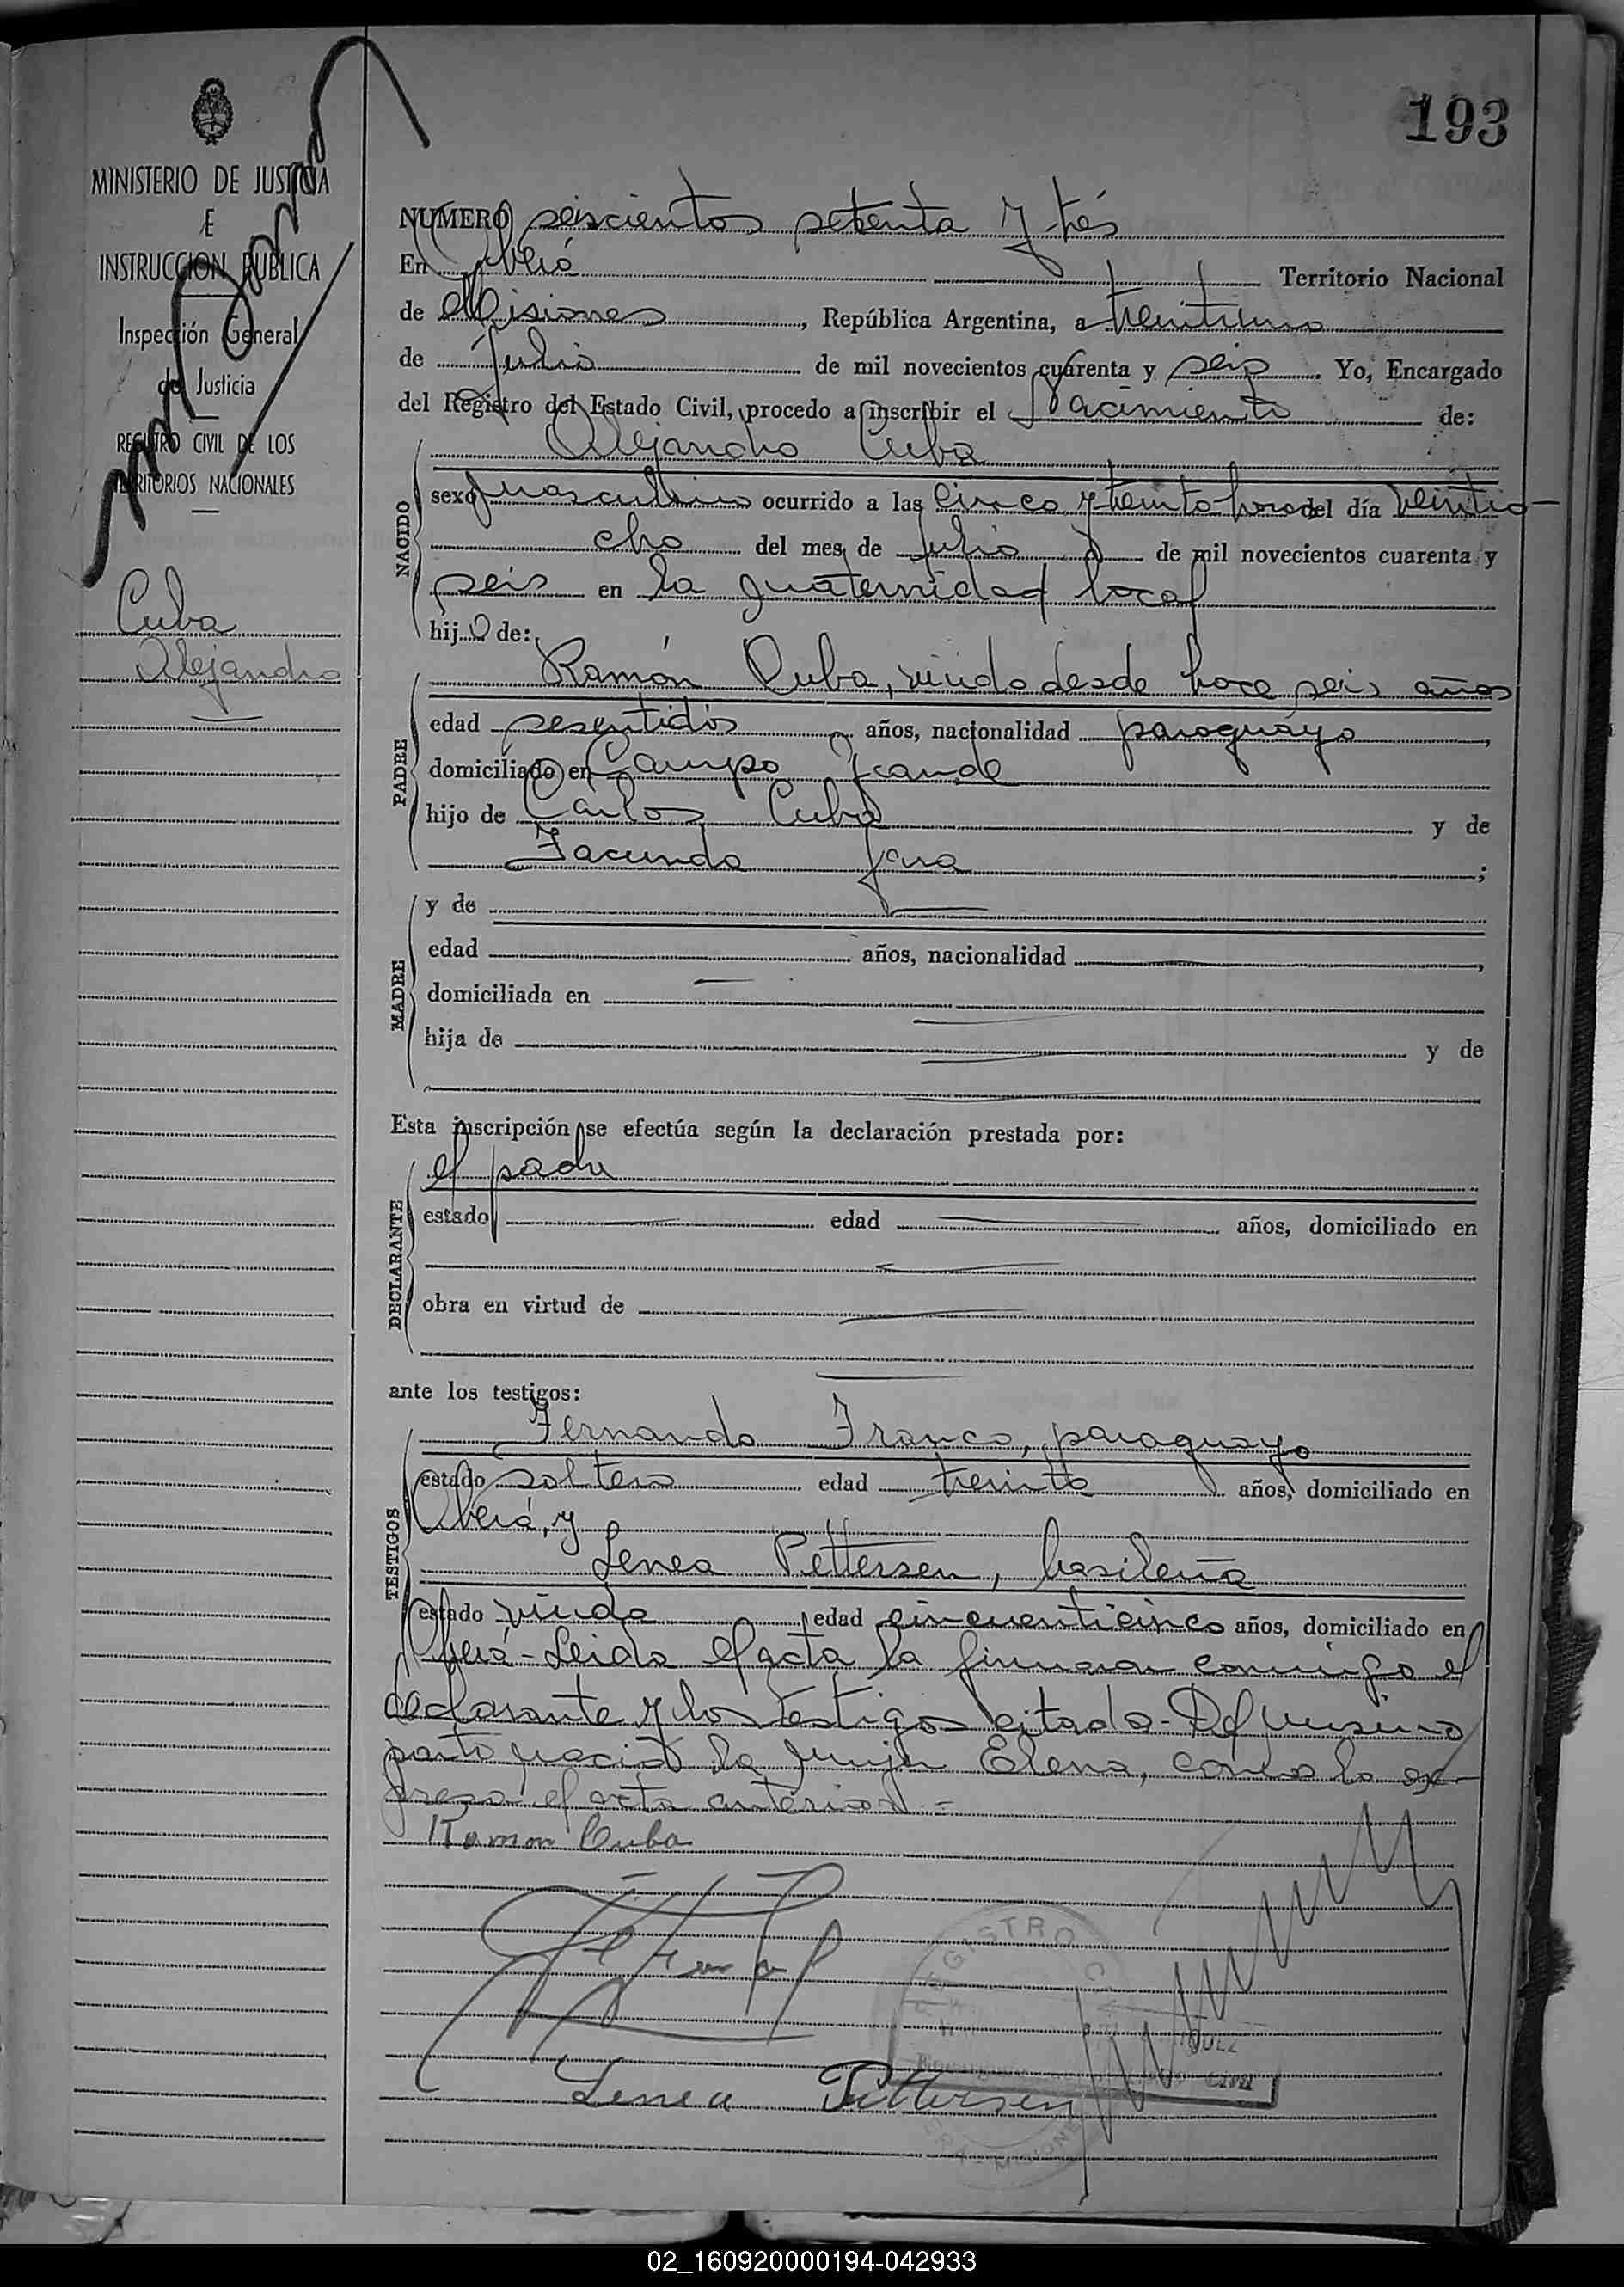 193
MINISTERIO DE JUSTICIA
E
INSTRUCCION PUBLICA
Inspección General
de Justicia
REGISTRO CIVIL DE LOS
TERRITORIOS NACIONALES
Cuba
Alejandro
NUMERO seiscientos setenta y trés
En Oberá Territorio Nacional
de Misiones, República Argentina, a treintiuno
de Julio de mil novecientos cuarenta y seis. Yo, Encargado
del Registro del Estado Civil, procedo a inscribir el Nacimiento de:
Alejandro Cuba
NACIDO
sexo masculino ocurrido a las cinco y treinta horas del día veintio-
cho del mes de Julio de mil novecientos cuarenta y
seis en la maternidad local
hijo de:
PADRE
Ramón Cuba, viudo desde hace seis años
edad sesentidós años, nacionalidad paraguayo,
domiciliado en Campo Grande
hijo de Carlos Cuba y de
Facunda Jara;
MADRE
y de
edad años, nacionalidad,
domiciliada en
hija de y de
Esta inscripción se efectúa según la declaración prestada por:
DECLARANTE
el padre
estado edad años, domiciliado en
obra en virtud de
ante los testigos:
TESTIGOS
Fernando Franco, paraguayo
estado soltero edad treinta años, domiciliado en
Oberá, y
Lenea Pettersen, brasileña
estado viuda edad cincuenticinco años, domiciliado en
Oberá-Leida el acta la firmaron conmigo el
declarante y los testigos citados-Del mismo
parto nació la mujer Elena, como lo ex-
presa el acta anterior.=
Ramon Cuba
Lenea Pettersen
REGISTRO
MISIONES
02_160920000194-042933